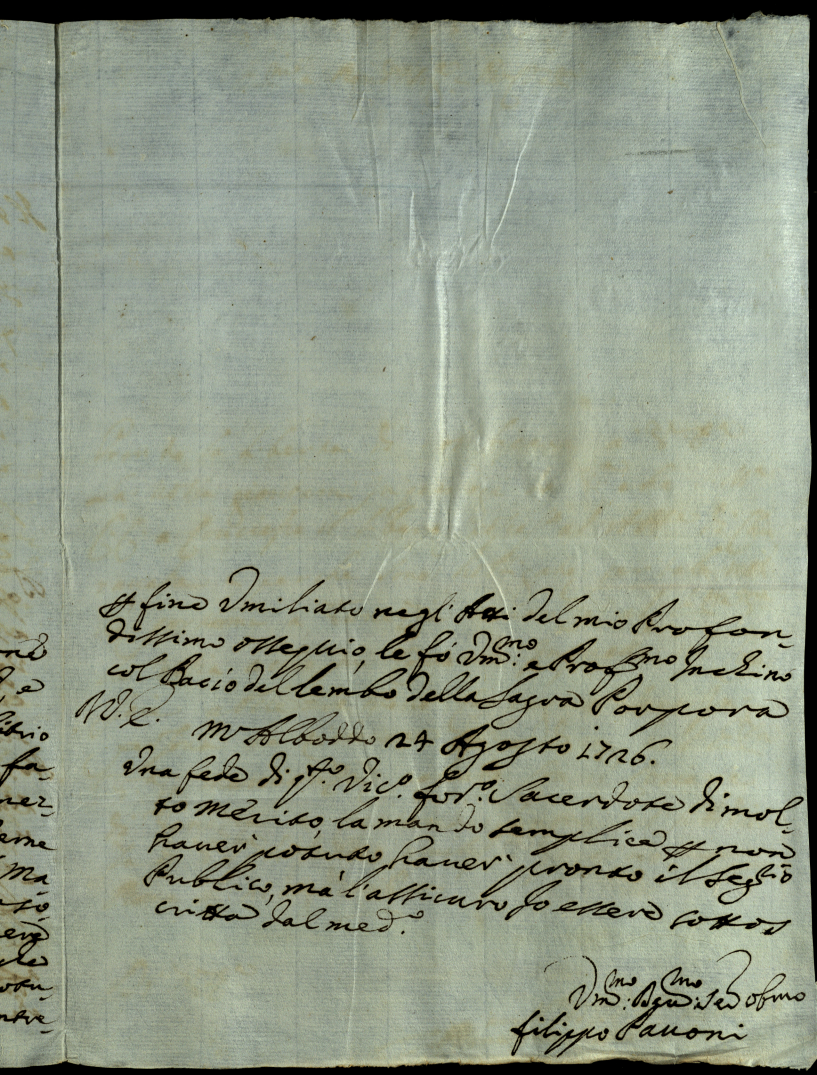 fine Umiliato negl' Atti del mio Profon-
dissimo ossequio, le fó Um:mo e Profmo Inchino
col Bacio del lembo della Sagra Porpora
N.E. M Alboddo 24 Agosto 1726.
Una fede di qto. Vico. foro. Sacerdote di mol-
to merito, la mando semplice non
haver potuto haver pronto il
Publico, má l'assicuro Io essere sottos
critta dal medo.
Um:mo Seo obmo
filippo Pavoni
ne
e
itrio
fa-
nez-
erne
Ma
to,
ere
otu-
ntre-